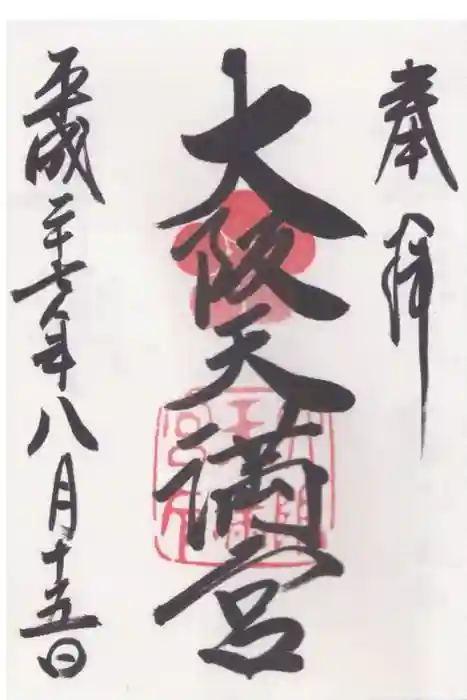 奉拝
大阪天満宮
平成二十六年八月十五日